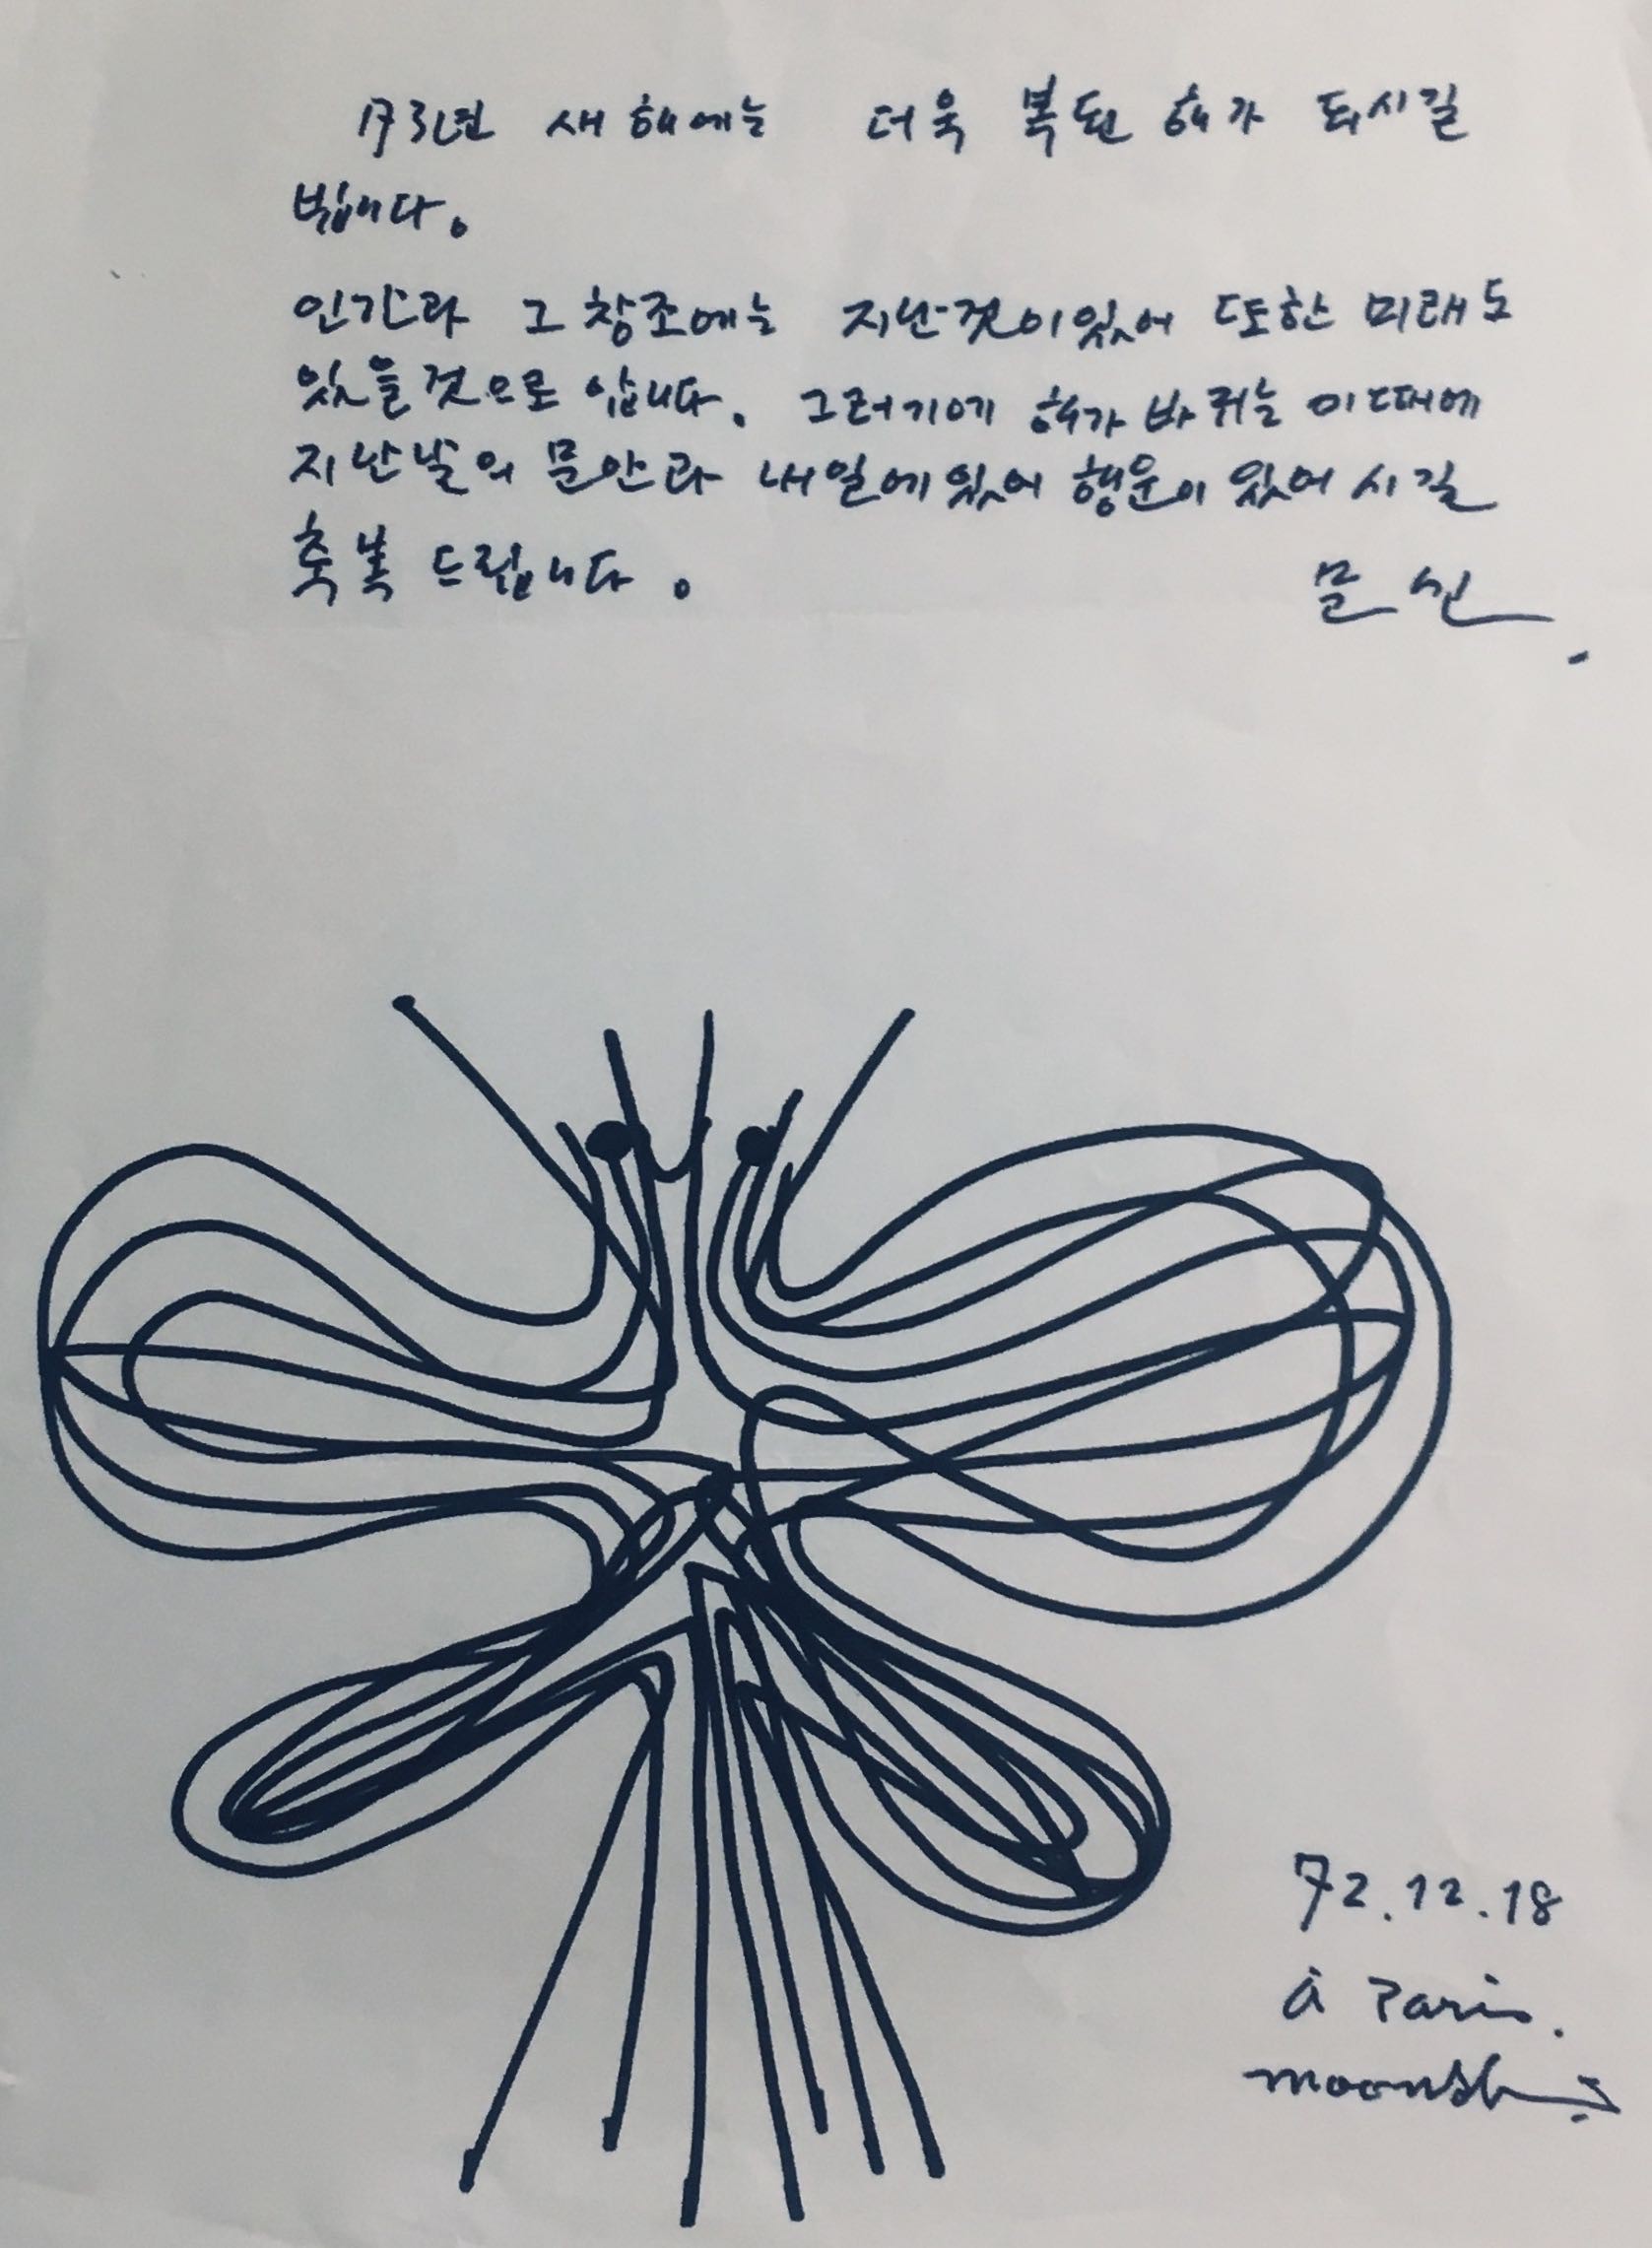 73년 새해에는 더욱 복된 해가 되시길
빕니다.
인간과 그 창조에는 지난것이있어 또한 미래도
있을것으로 압니다. 그러기에 해가 바뀌는 이때에
지난날의 문안과 내일에있어 행운이 있어시길
축복 드립니다.
문신
72.12.18
à Paris.
moonsh